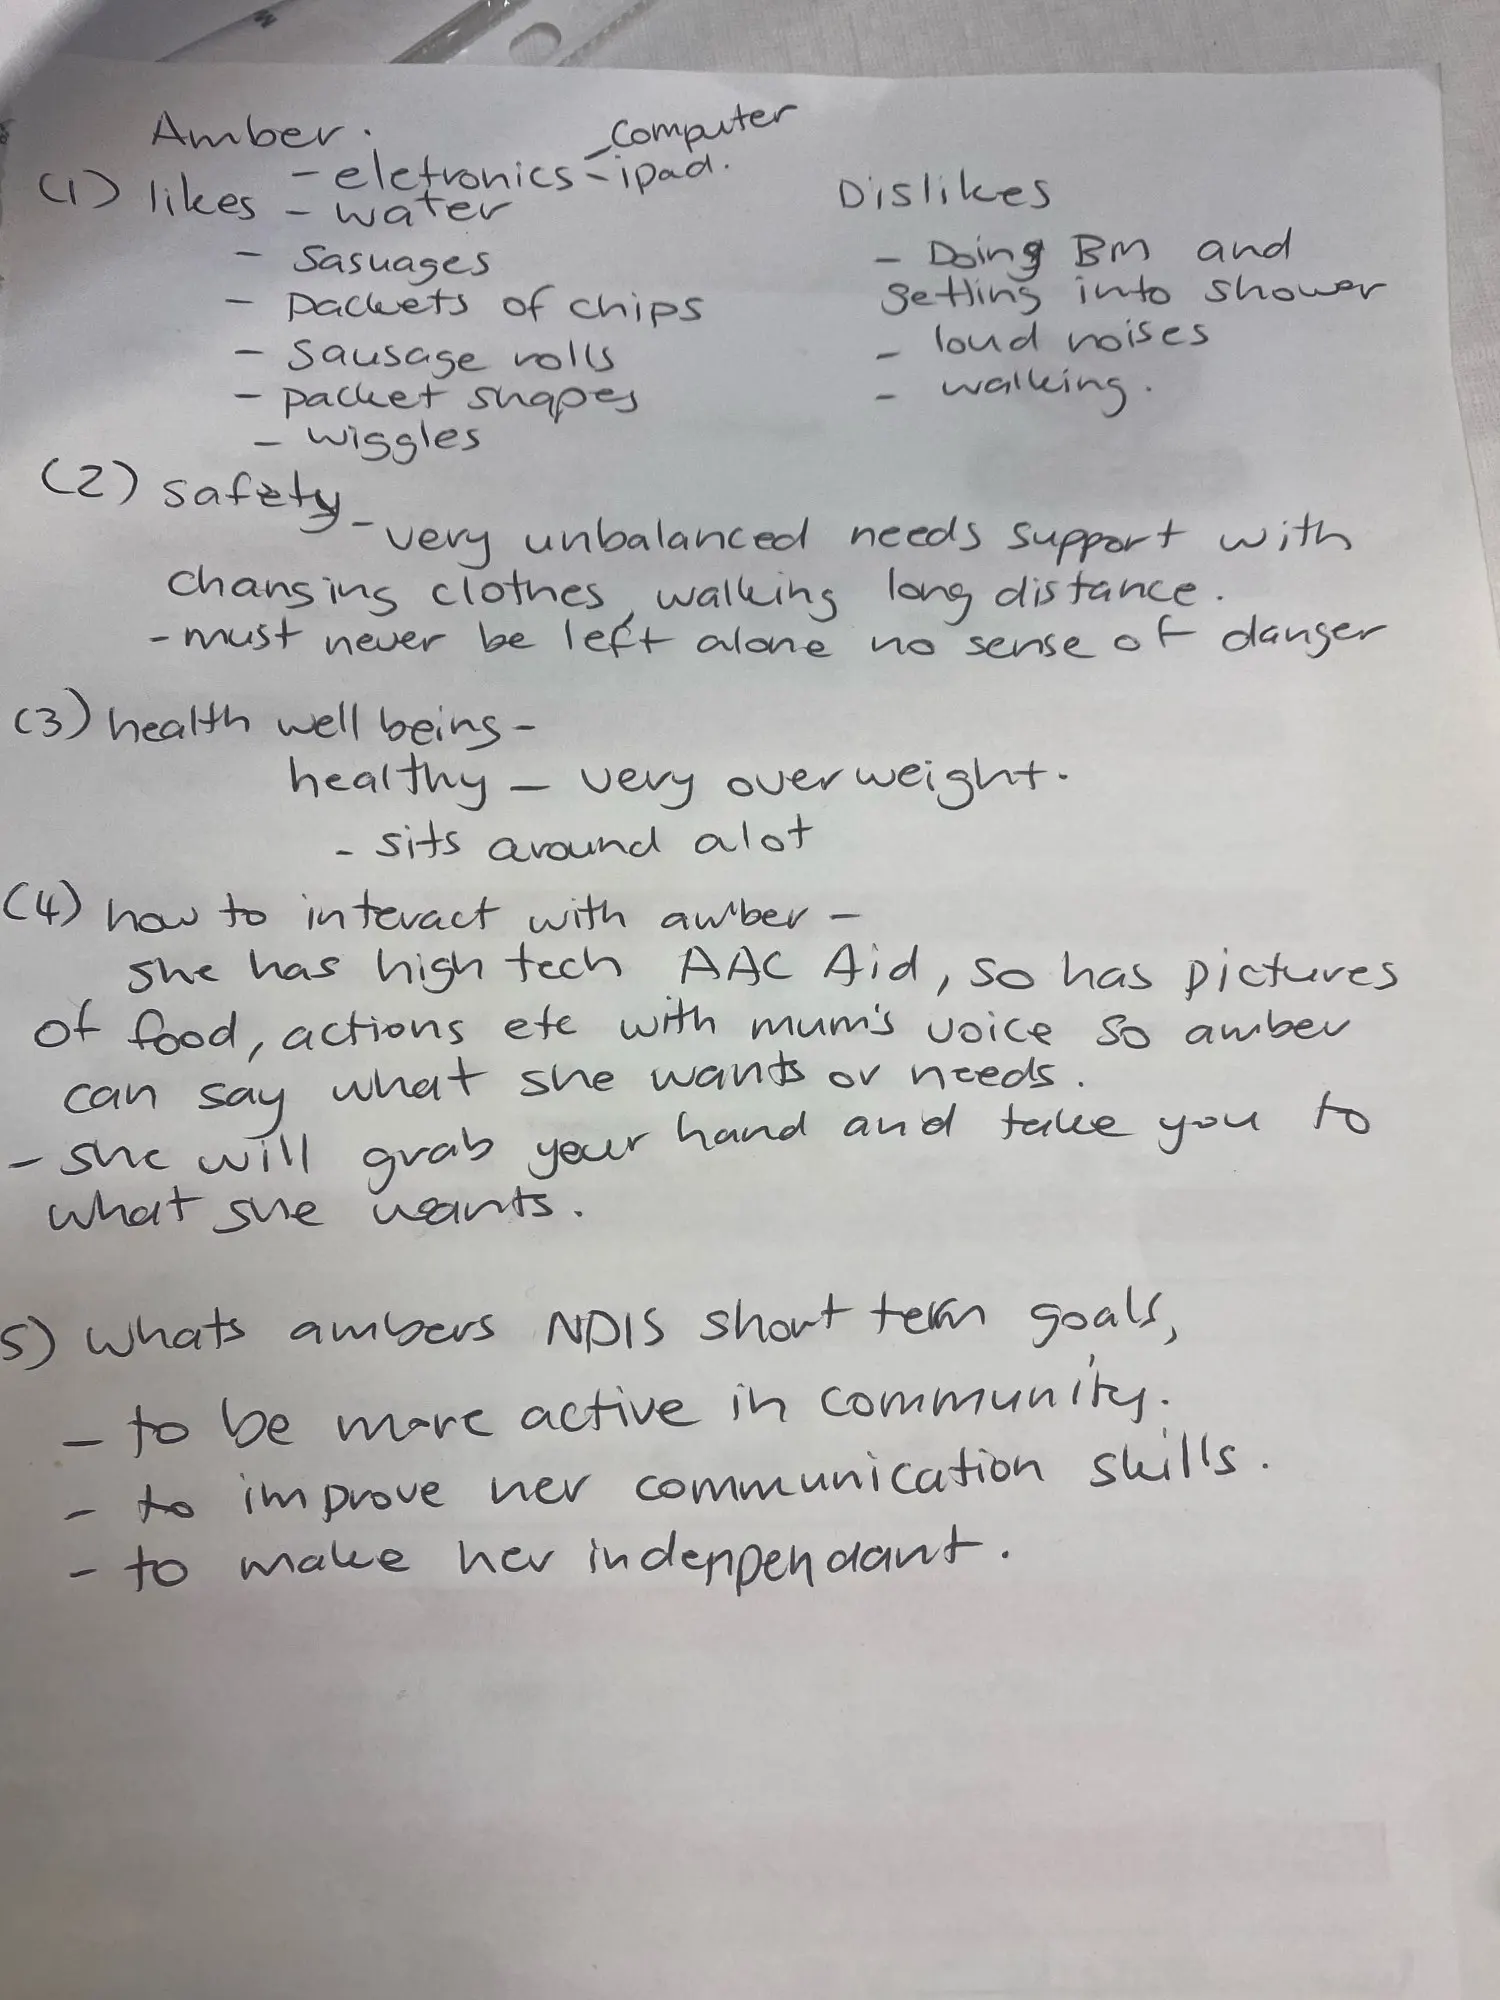 Amber.
(1) likes - eletronics - computer
- ipad.
- water
- Sasuages
- packets of chips
- sausage rolls
- packet shapes
- wiggles
Dislikes
- Doing BM and
getting into shower
- loud noises
- walking.
(2) safety
- very unbalanced needs support with
changing clothes, walking long distance.
- must never be left alone no sense of danger
(3) health well being -
healthy - very overweight.
- sits around alot
(4) how to interact with amber -
she has high tech AAC Aid, so has pictures
of food, actions etc with mum's voice so amber
can say what she wants or needs.
- she will grab your hand and take you to
what she wants.
5) whats ambers NDIS short term goals,
- to be more active in community.
- to improve her communication skills.
- to make her indenpendant.